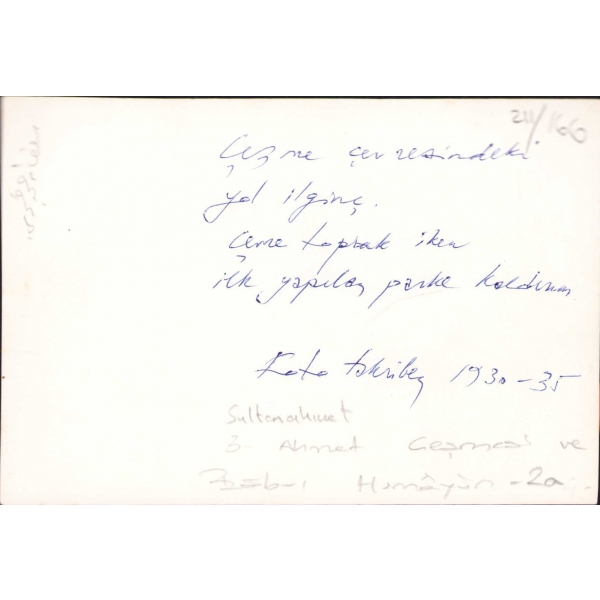 211/166
Çeşme çevresindeki
yol ilginç.
Çevre toprak iken
ilk yapılan parke kaldırım
Foto takriben 1930-35
Sultanahmet
3. Ahmet Çeşmesi ve
Bâb-ı Hümâyûn -2a